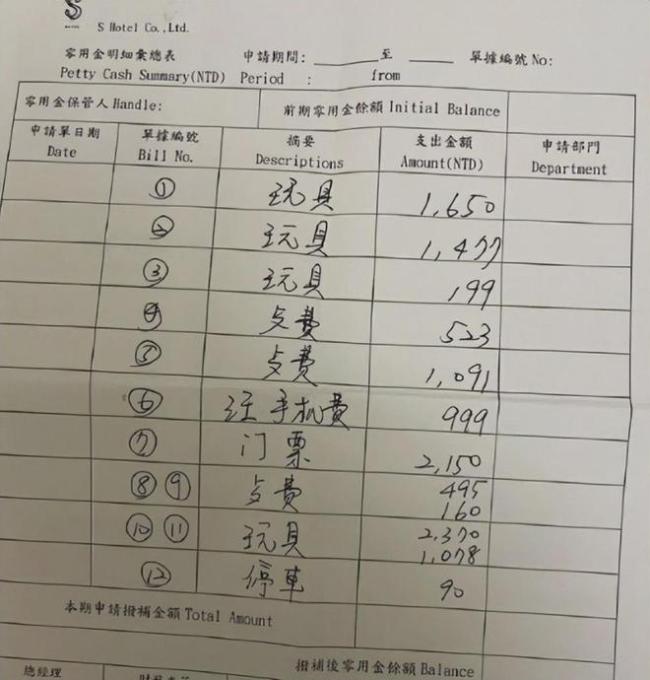 S
S Hotel Co.,Ltd.
零用金明細彙總表 申請期間: 至 單據編號 No:
Petty Cash Summary(NTD) Period : from
零用金保管人 Handle: 前期零用金餘額 Initial Balance
申請單日期 單據編號 摘要 支出金額 申請部門
Date Bill No. Descriptions Amount(NTD) Department
① 玩具 1,650
② 玩具 1,477
③ 玩具 199
④ 歺費 523
⑤ 歺費 1,091
⑥ 汪 手机費 999
⑦ 门票 2,150
⑧ ⑨ 歺費 495
160
⑩ ⑪ 玩具 2,370
1,078
⑫ 停車 90
本期申請撥補金額 Total Amount
撥補後零用金餘額 Balance
總經理